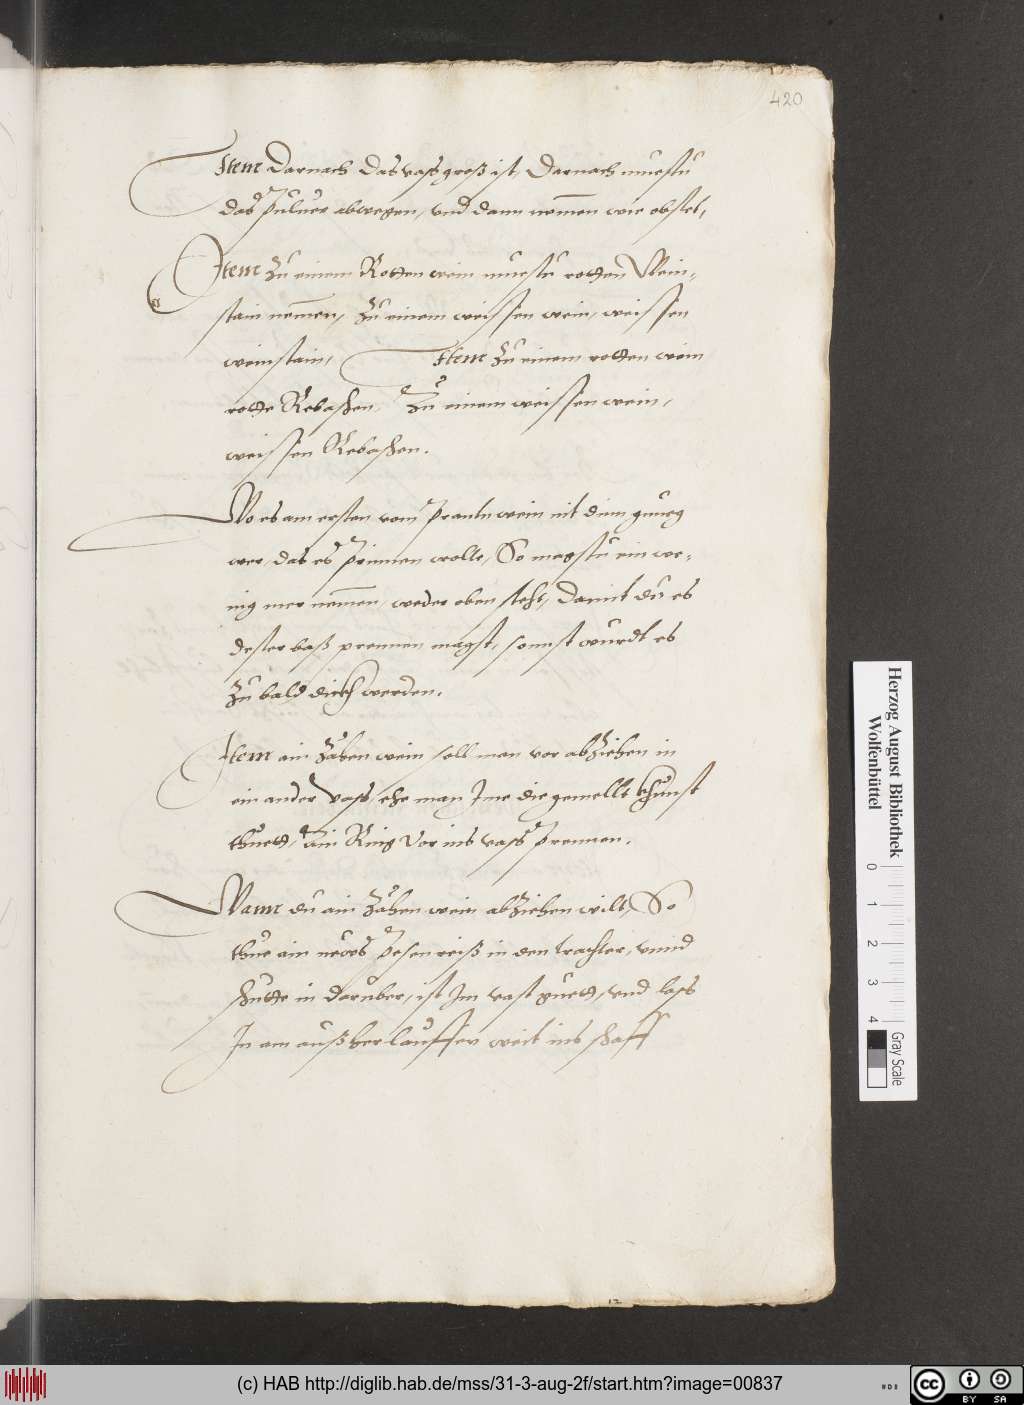 420
Item Darnach das vass groß ist, Darnach muestu
das Puluer abwegen, vnd dann nemmen wie obstet,
Item Zu einem Rotten wein muestu rotten Wein-
stain nemmen, Zu einem weissen wein, weissen
weinstain, Item Zu einem rotten wein
rotte Rebaschen, Zu einem weissen wein,
weissen Rebaschen.
Wo es am ersten vom Prantwein nit dinn gnueg
wer, das es Prinnen wolle, So magstu ein we-
nig mer nemmen, weder oben steht, Damit du es
dester baß prennen magst, sonnst wurdt es
Zu bald dickh werden.
Item ain Zähen wein soll man vor abziehen in
ein ander Vass, ehe man Ime die gemellt khunst
thuett, ain Ring Vor ins vass Prennen.
Wann du ain Zähen wein abziehen wilt, So
thue ain neues Pesenreiß in den trachter, vnnd
schutte in darüber, ist Im vast guett, vnd lass
In am außher lauffen weit ins schaff
Herzog August Bibliothek
Wolfenbüttel
0 1 2 3 4
Gray Scale
(c) HAB http://diglib.hab.de/mss/31-3-aug-2f/start.htm?image=00837
cc BY SA